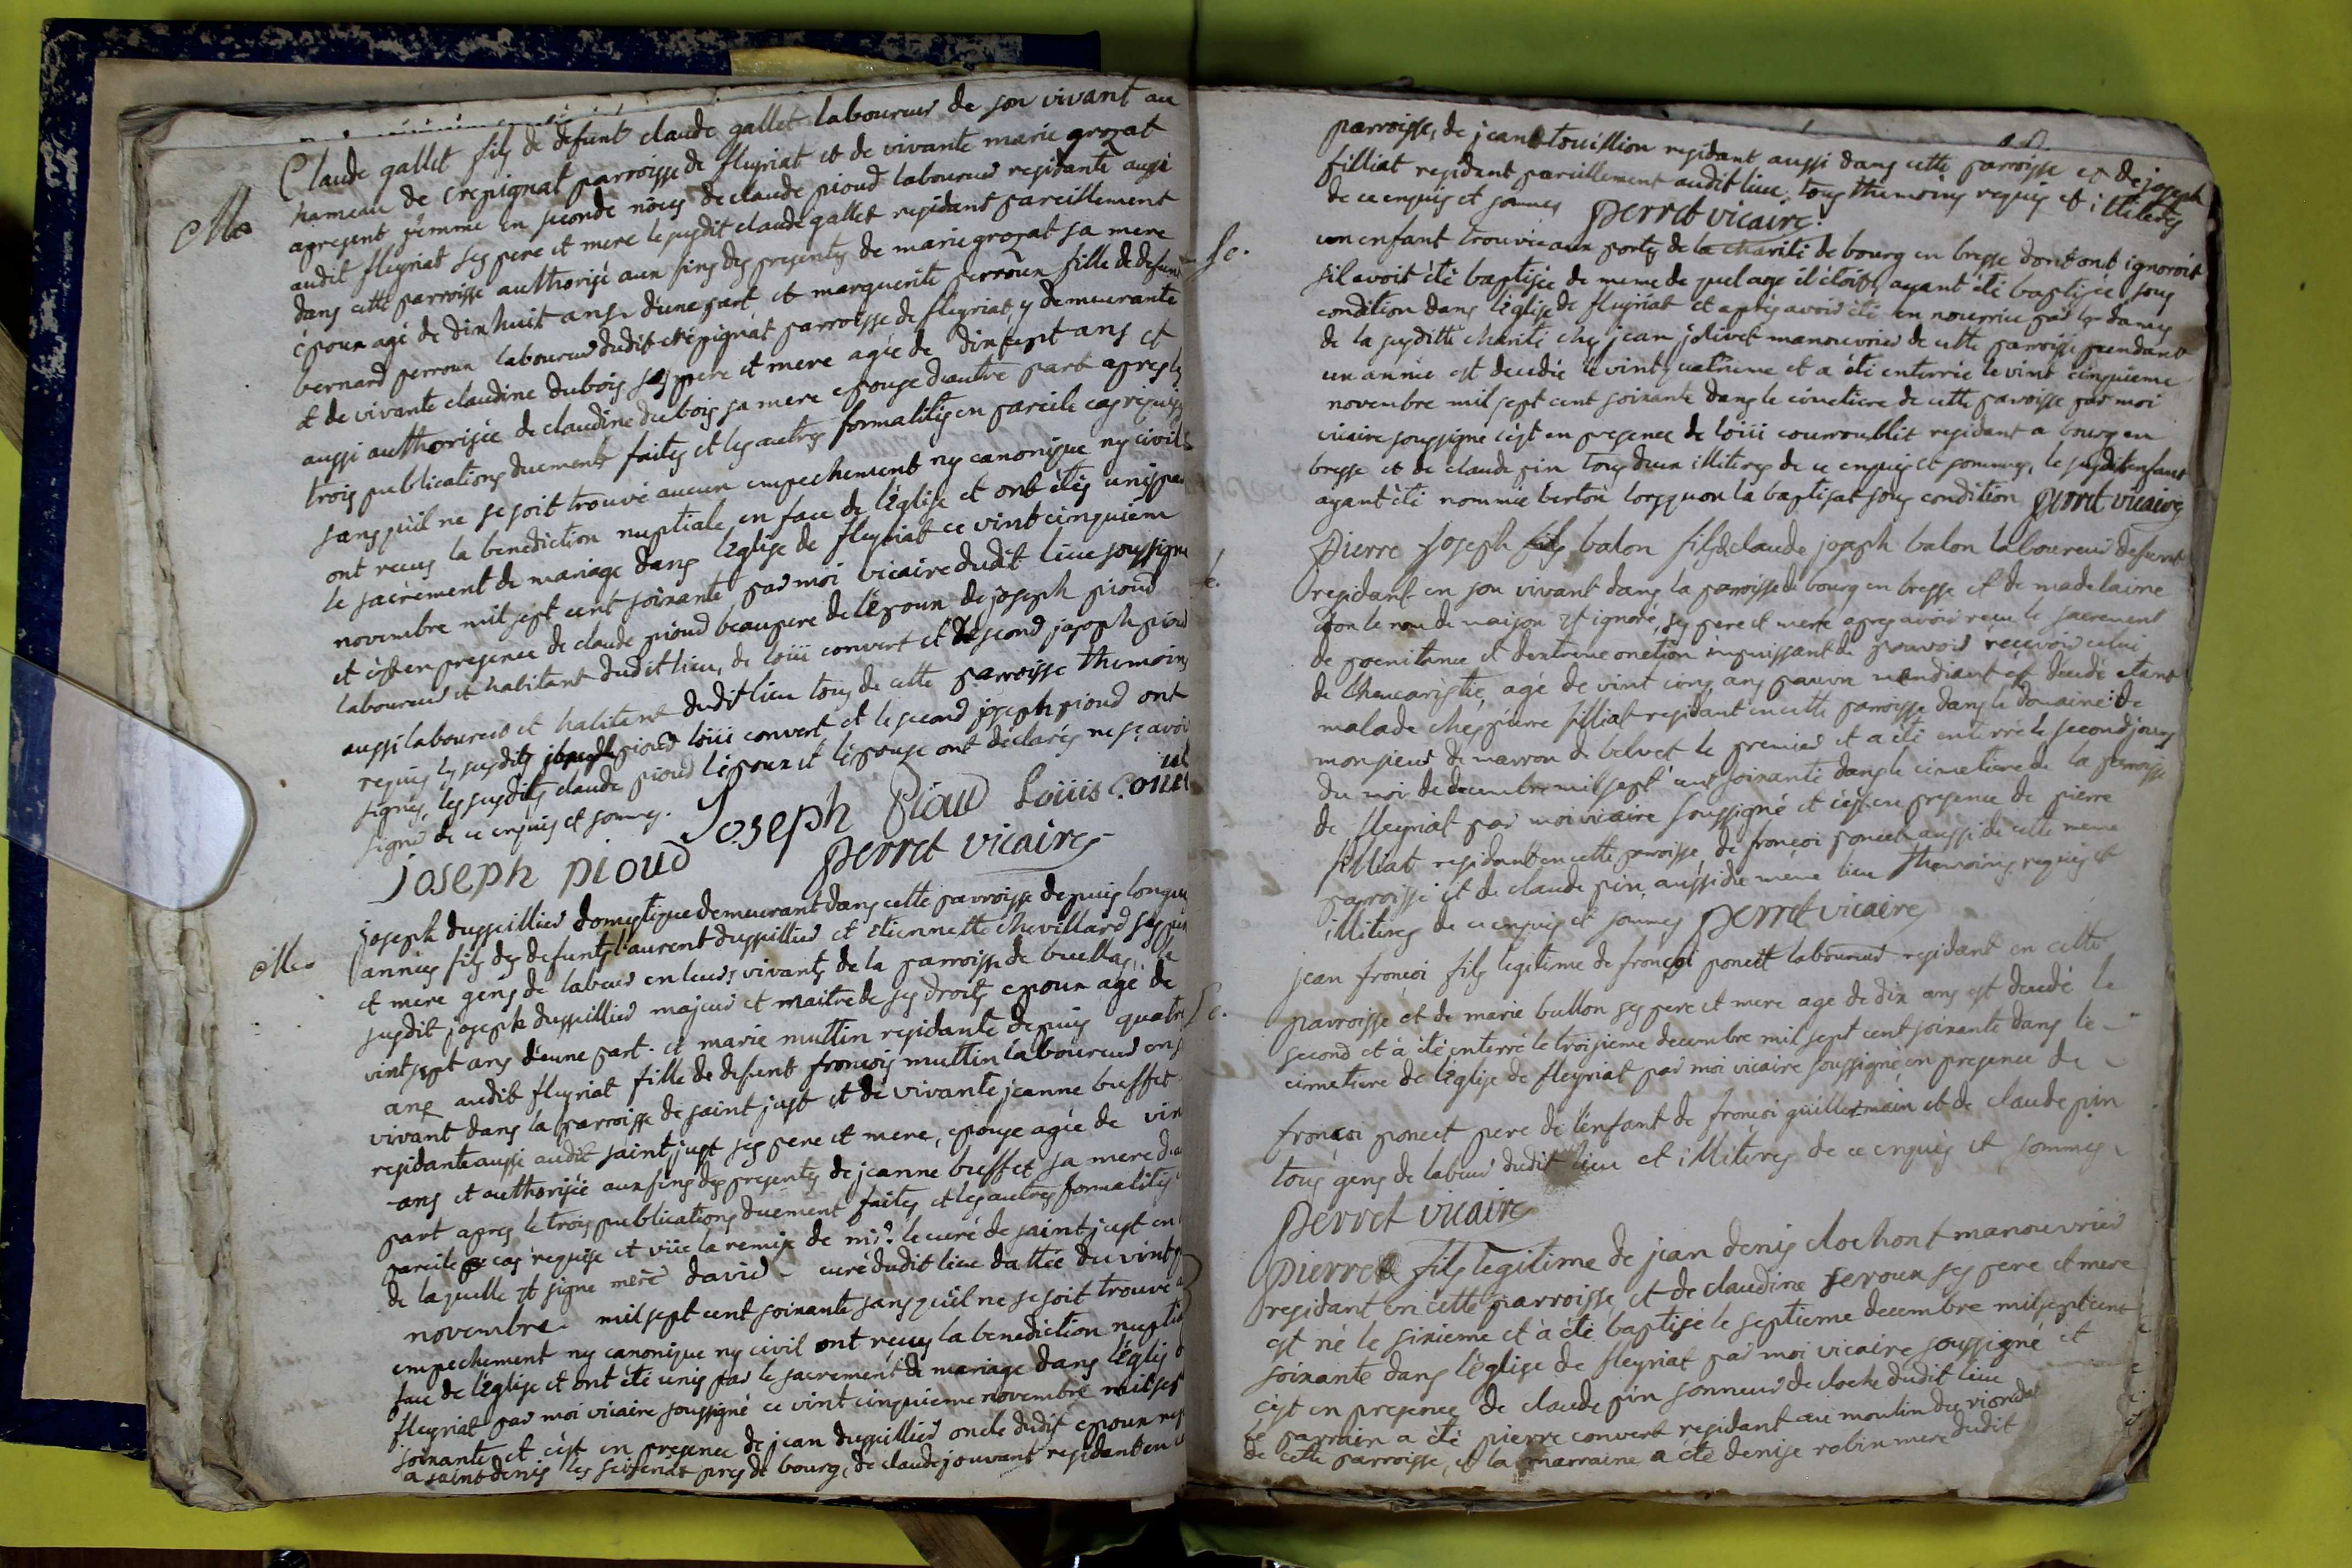 Claude gallet fils de defunt claude gallet laboureur de son vivant au
Ma hameau de crepignat parroisse de fleyriat et de vivante marie grozat
apresent femme en seconde nôces de claude pioud laboureur residante aussi
audit fleyriat ses pere et mere le susdit claude gallet residant pareillement
dans cette parroisse authorisé aux fins des presentes de marie grozat sa mere
époux agé de dix huit ans d'une part et marguerite perroux fille de defunt
bernard perroux laboureur dudit crépignat parroisse de fleyriat, y demeurante
et de vivante claudine dubois ses pere et mere agée de dix sept ans et
aussi authorisée de claudine dubois sa mere epouse d'autre part apres les
trois publications duement faites et les autres formalités en pareile cas requises
sans qu'il ne se soit trouvé aucun empechement ny canonique ny civil
ont recus la benediction nuptiale en face de l'église et ont étés unis par
le sacrement de mariage dans l'église de fleyriat ce vint cinquiem
novembre mil sept cent soixante par moi vicaire dudit lieu soussigné
et c'est en presence de claude pioud beaupere de l'époux de joseph pioud
laboureur et habitant dudit lieu, de loüi convert et de second joseph pioud
aussi laboureur et habitant dudit lieu tous de cette parroisse themoins
requis les susdits joseph pioud loüi convert et le second joseph pioud ont
signés, les susdits claude pioud l'époux et l'épouse ont déclarés ne sçavoir
signer de ce enquis et sommes. Joseph Pioud Loüis Conver
joseph pioud perret vicaire
joseph duspillier domestique demeurant dans cette parroisse depuis longue
Ma années fils des defunts laurent duspillier et etiennette chevillard ses pere
et mere gens de labeur en leurs vivants de la parroisse de buellas, le
susdit joseph duspillier majeur et maitre de ses droits epoux agé de
vint sept ans d'eune part. et marie muttin residante depuis quatre
ans audit fleyriat fille de defunt françois muttin laboureur en s
vivant dans la parroisse de saint just et de vivante jeanne buffet
residante aussi audit saint just ses pere et mere, epouse agée de vin
ans et authorisée aux fins des presentes de jeanne buffet sa mere d'au
part apres le trois publications duement faites et les autres formalités
pareile cas requise et vüe la remise de mr. le curé de saint just en
de laquelle est signe mere david curé dudit lieu dattée du vint
novembre mil sept cent soixante sans qu'il ne se soit trouvé
empechement ny canonique ny civil ont recus la benediction nuptia
face de l'église et ont été unis par le sacrement de mariage dans l'églis
fleyriat par moi vicaire soussigné ce vint cinquieme novembre mil sep
soixante et c'est en presence de jean duspillier oncle dudit epoux res
a saint denis pres de bourg, de claude jouvant residant en
parroisse, de jean touillion residant aussi dans cette parroisse et de joseph
filliat residant pareillement audit lieu, tous themoins requis et illiteres
de ce enquis et sommes perret vicaire.
Se. un enfant trouvée aux portes de la charité de bourg en bresse dont ont ignoroit
s'il avoit été baptisée de meme de quel age il étoit, ayant été baptisée sous
condition dans l'église de fleyriat et après avoir été en nourrice par les dames
de la susditte charité chés jean jolivet manouvrier de cette parroisse pendant
un année est decedée le vint quatrieme et a été enterrée le vint cinquieme
novembre mil sept cent soixante dans le cimetiere de cette paroisse par moi
vicaire soussigné c'est en presence de loüi courroublit residant a bourg en
bresse et de claude pin tous deux illiteres de ce enquis et sommes, le susdit enfant
ayant été nommée berton lorsquon l'a baptisat sous condition perret vicaire
Pierre joseph balon fils de claude joseph balon laboureur defunt
residant en son vivant dans la parroisse de bourg en bresse et de madelaine
dont le nom de maison est ignoré, ses pere et mere apres avoir recu le sacrement
de poenitance et dextreme onction impuissant de pouvoir recevoir celui
de lheucaristie, agé de vint cinq ans pauvre mendiant est décedé etant
malade chés pierre filliat residant en cette parroisse dans le domaine de
monsieur de marron de belvet le premier et a été enterré le second jour
du moi de decembre mil sept cent soixante dans le cimetiere de la parroisse
de fleyriat par moi vicaire soussigné et c'est en presence de pierre
filliat residant en cette parroisse, de françoi poncet aussi de cette meme
parroisse et de claude pin aussi du même lieu themoins requis et
illiteres de ce enquis et sommes perret vicaire
jean françoi fils legitime de françoi poncet laboureur residant en cette
Se. parroisse et de marie bullon ses pere et mere age de dix ans est decedé le
second et à été enterré le troisieme decembre mil sept cent soixante dans le
cimetiere de l'église de fleyriat par moi vicaire soussigné en presence de
françoi poncet pere de l'enfant de françoi guillermain et de claude pin
tous gens de labeur dudit lieu et illiteres de ce enquis et sommes
perret vicaire
Pierre fils legitime de jean denis clochont manouvrier
residant en cette parroisse, et de claudine feroux ses pere et mere
est né le sixieme et à été baptisé le septieme decembre mil sept cent
soixante dans l'église de fleyriat par moi vicaire soussigné et
c'est en presence de claude pin sonneur de cloche dudit lieu
le parrain a été pierre convert residant au moulin du viondal
de cette parroisse, et la marraine a été denise robin mere dudit